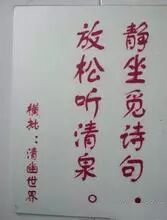 静坐觅诗句。
放松听清泉。
横批：清幽世界